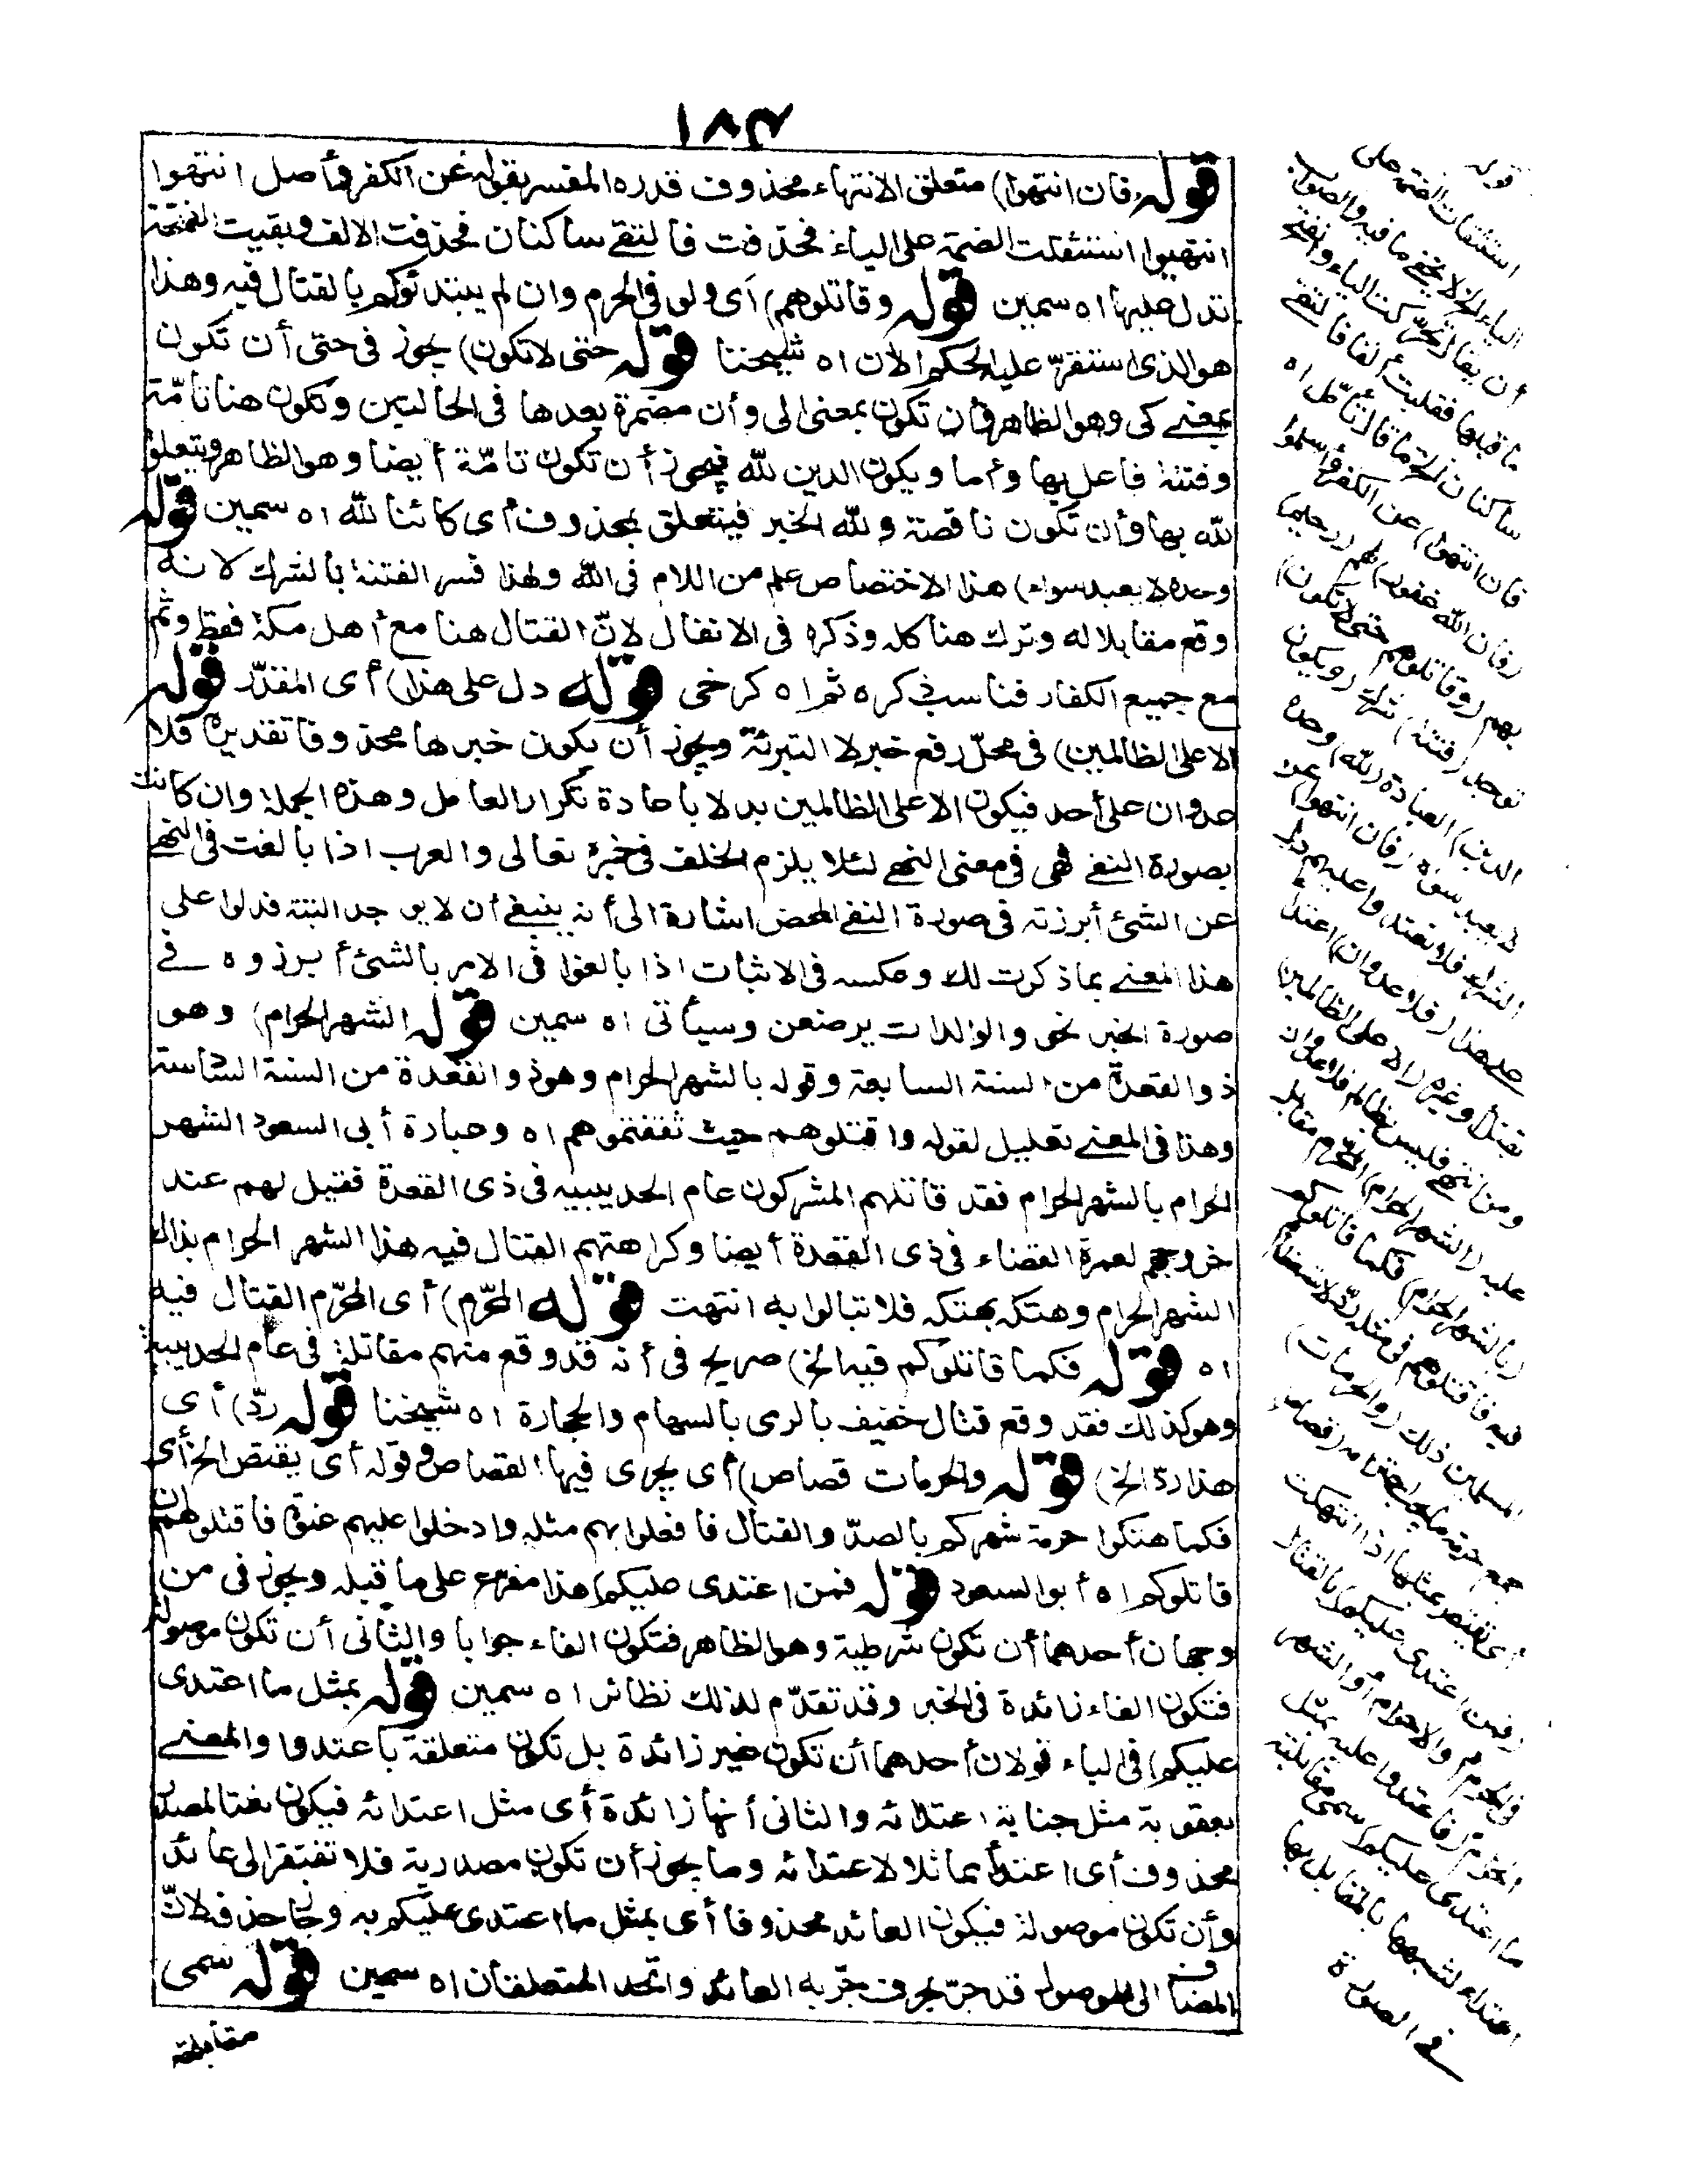 ١٨٣
قوله (فان انتهوا) متعلق الانتهاء محذوف قدره المفسر بقوله عن الكفر وأصل انتهوا
انتهيوا استثقلت الضمة على الياء فحذفت فالتقى ساكنان فحذفت الالف وبقيت الفتحة
تدل عليها اه سمين قوله وقاتلوهم) أى ولو فى الحرم وان لم يبتدئوكم بالقتال فيه وهذا
هو الذى استقرّ عليه الحكم الآن اه شيخنا قوله حتى لاتكون) يجوز فى حتى أن تكون
بمعنى كى وهو الظاهر وأن تكون بمعنى الى وأن مضمرة بعدها فى الحالين وتكون هنا تامّة
وفتنة فاعل بها وأما ويكون الدين لله فيجوز أن تكون تامّة أيضا وهو الظاهر ويتعلق
لله بها وأن تكون ناقصة ولله الخبر فيتعلق بمحذوف أى كائنا لله اه سمين قوله
وحده لا يعبد سواه) هذا الاختصاص علم من اللام فى الله ولهذا فسر الفتنة بالشرك لانه
وقع مقابلا له وترك هنا كله وذكره فى الانفال لانّ القتال هنا مع أهل مكة فقط وثم
مع جميع الكفار فناسب ذكره ثم اه كرخى قوله دل على هذا) أى المقدّر قوله
الا على الظالمين) فى محلّ رفع خبر لا التبرئة ويجوز أن يكون خبرها محذوفا تقديره فلا
عدوان على أحد فيكون الا على الظالمين بدلا باعادة تكرار العامل وهذه الجملة وان كانت
بصورة النفى فهى فى معنى النهى لئلا يلزم الخلف فى خبره تعالى والعرب اذا بالغت فى النهى
عن الشئ أبرزته فى صورة النفى المحض اشارة الى أنه ينبغى أن لا يوجد البتة فدلوا على
هذا المعنى بما ذكرت لك وعكسه فى الاثبات اذا بالغوا فى الامر بالشئ أبرزوه فى
صورة الخبر نحو والوالدات يرضعن وسيأتى اه سمين قوله الشهر الحرام) وهو
ذو القعدة من السنة السابعة وقوله بالشهر الحرام وهو ذو القعدة من السنة السادسة
وهذا فى المعنى تعليل لقوله واقتلوهم حيث ثقفتموهم اه وعبارة أبى السعود الشهر
الحرام بالشهر الحرام فقد قاتلهم المشركون عام الحديبيه فى ذى القعدة فقيل لهم عند
خروجهم لعمرة القضاء فى ذى القعدة أيضا وكراهتهم القتال فيه هذا الشهر الحرام بذلك
الشهر الحرام وهتكه بهتكه فلا تبالوا به انتهت قوله المحرّم) أى المحرّم القتال فيه
اه قوله فكما قاتلوكم فيه الخ) صريح فى أنه قد وقع منهم مقاتلة فى عام الحديبية
وهو كذلك فقد وقع قتال خفيف بالرمى بالسهام والحجارة اه شيخنا قوله ردّ) أى
هذا ردّ الخ) قوله والحرمات قصاص) أى يجرى فيها القصاص وقوله أى يقتص الخ أى
فكما هتكوا حرمة شهركم بالصدّ والقتال فافعلوا بهم مثله وادخلوا عليهم عنوة فاقتلوهم ان
قاتلوكم اه أبو السعود قوله فمن اعتدى عليكم) هذا مفرع على ما قبله ويجوز فى من
وجهان أحدهما أن تكون شرطية وهو الظاهر فتكون الفاء جوابا والثانى أن تكون موصولة
فتكون الفاء زائدة فى الخبر وقد تقدّم لذلك نظائر اه سمين قوله بمثل ما اعتدى
عليكم) فى الباء قولان أحدهما أن تكون غير زائدة بل تكون متعلقة باعتدوا والمعنى
بعقوبة مثل جناية اعتدائه والثانى أنها زائدة أى مثل اعتدائه فيكون نعتا لمصدر
محذوف أى اعتداء مماثلا لاعتدائه وما يجوز أن تكون مصدرية فلا تفتقر الى عائد
وأن تكون موصولة فيكون العائد محذوفا أى بمثل ما اعتدى عليكم به وجاز حذفه لانّ
المضاف الى الموصول قد جرّ بحرف جرّ به العائد واتحد المتعلقان اه سمين قوله سمى
مقابلته
قوله
استثقلت الضمة على
الياء الخ لا يخفى ما فيه والصواب
أن يقال تحرّكت الياء وانفتح
ما قبلها فقلبت ألفا فالتقى
ساكنان الخ ما قال تأمّل اه
فان انتهوا) عن الكفر وأسلموا
(فان الله غفور) لهم (رحيم)
بهم (وقاتلوهم حتى لا تكون)
توجد (فتنة) شرك (ويكون
الدين) العبادة (لله) وحده
لا يعبد سواه (فان انتهوا) عن
الشرك فلا تعتدوا عليهم دل
على هذا (فلا عدوان) اعتداء
بقتل وغيره (الا على الظالمين)
ومن انتهى فليس بظالم فلا عدوان
عليه (الشهر الحرام) المحرّم مقابل
(بالشهر الحرام) فكما قاتلوكم
فيه فاقتلوهم فى مثله ردّ لاستعظام
المسلمين ذلك (والحرمات)
جمع حرمة ما يجب احترامه (قصاص)
أى يقتص بمثلها اذا انتهكت
(فمن اعتدى عليكم) بالقتال
فى الحرم والاحرام أو الشهر
الحرام (فاعتدوا عليه بمثل
ما اعتدى عليكم) سمى مقابلته
اعتداء لشبهها بالمقابل بها
فى الصورة